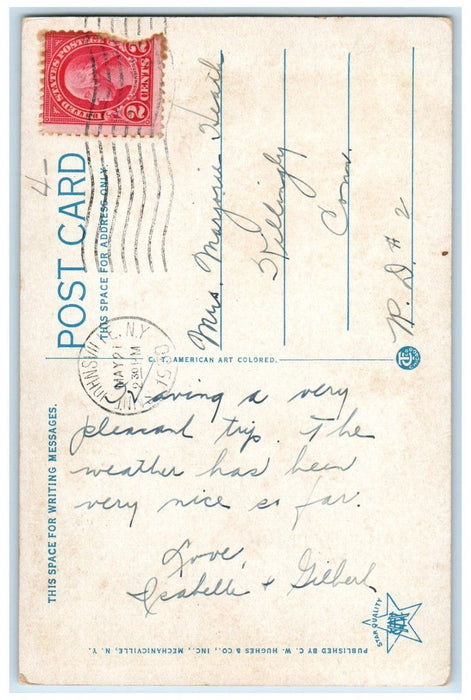 UNITED STATES POSTAGE
2 2
4-
POST CARD
THIS SPACE FOR ADDRESS ONLY.
Mrs. Marjorie Heath
Killingly
Conn.
R.D. # 2
MAY 21
230 PM
1930
N.Y.
C.T. AMERICAN ART COLORED.
THIS SPACE FOR WRITING MESSAGES.
Having a very
pleasant trip. The
weather has been
very nice so far.
Love,
Isabelle & Gilbert
STAR QUALITY
PUBLISHED BY C. W. HUGHES & CO., INC., MECHANICVILLE, N. Y.